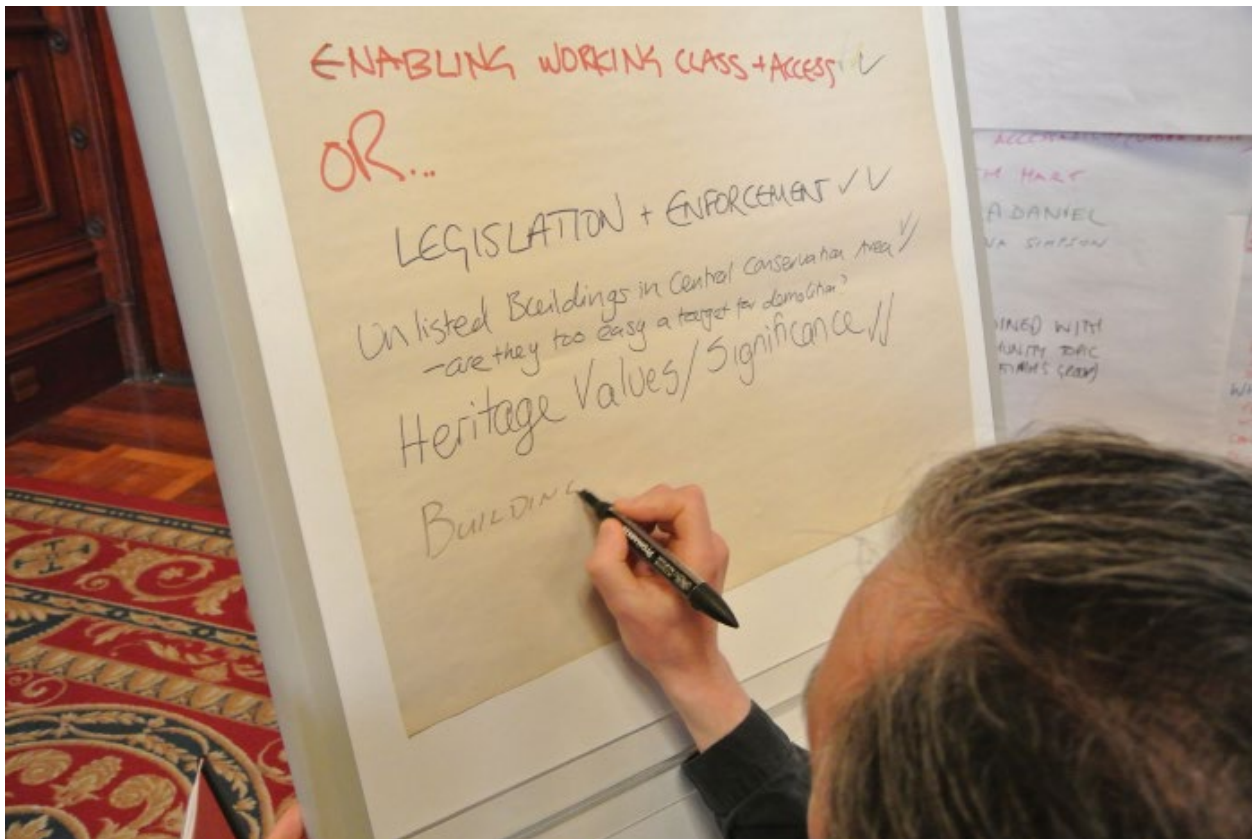 ENABLING WORKING CLASS + ACCESS
OR...
LEGISLATION + ENFORCEMENT
Unlisted Buildings in Central Conservation Area
- are they too easy a target for demolition?
Heritage Values/Significance
BUILDING
M HART
A DANIEL
NA SIMPSON
INED WITH
UNITY TOPIC